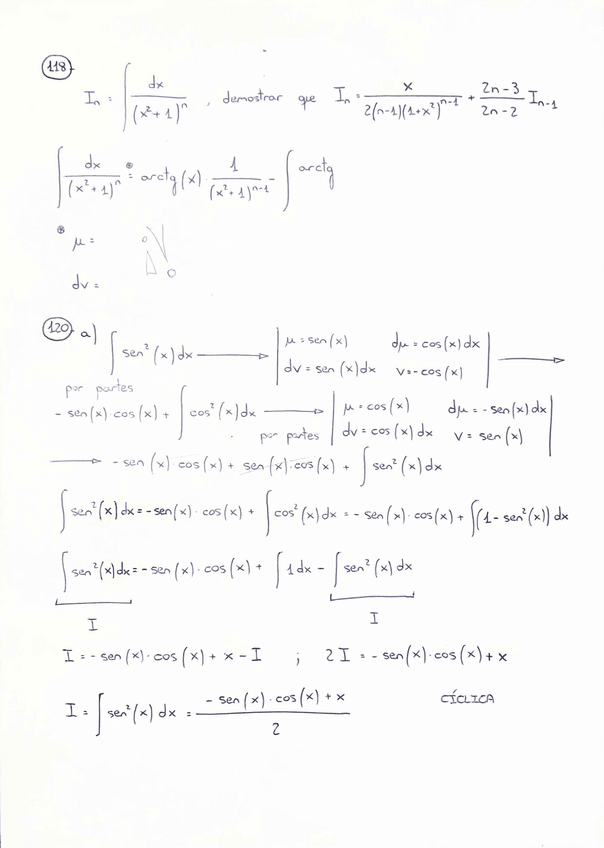 118
Iₙ = ∫ dx/(x²+1)ⁿ , demostrar que Iₙ = x/(2(n-1)(1+x²)ⁿ⁻¹) + (2n-3)/(2n-2) Iₙ₋₁
∫ dx/(x²+1)ⁿ = arctg(x) · 1/(x²+1)ⁿ⁻¹ - ∫ arctg
μ =
dv =
120 a) ∫ sen²(x)dx → | μ = sen(x) dμ = cos(x)dx | →
| dv = sen(x)dx v = -cos(x) |
por partes
- sen(x)·cos(x) + ∫ cos²(x)dx → | μ = cos(x) dμ = -sen(x)dx |
por partes | dv = cos(x)dx v = sen(x) |
→ - sen(x)·cos(x) + sen(x)·cos(x) + ∫ sen²(x)dx
∫ sen²(x)dx = -sen(x)·cos(x) + ∫ cos²(x)dx = - sen(x)·cos(x) + ∫(1-sen²(x))dx
∫ sen²(x)dx = -sen(x)·cos(x) + ∫ 1dx - ∫ sen²(x)dx
I I
I = - sen(x)·cos(x) + x - I ; 2I = -sen(x)·cos(x) + x
I = ∫ sen²(x)dx = (- sen(x)·cos(x) + x)/2 CÍCLICA